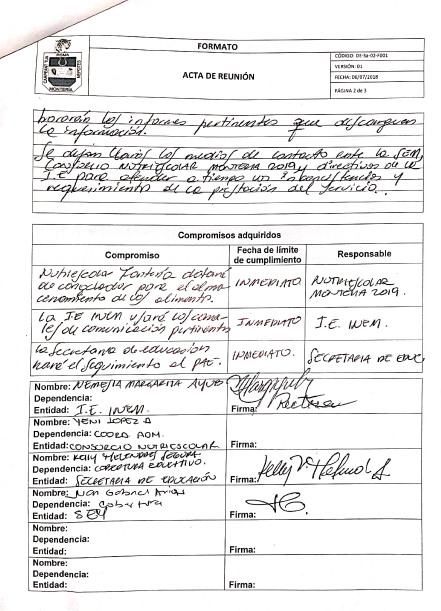 FORMATO
ACTA DE REUNIÓN
CÓDIGO: DE-Sa-02-F001
VERSIÓN: 01
FECHA: 06/07/2018
PÁGINA 2 de 3
MONTERÍA
los informes pertinentes que
la información.
Se dejan claros los medios de contacto ente la SEM,
Consorcio NUTRIESCOLAR MONTERIA 2019 y directivos de la
I.E para atender a tiempo
requerimiento de la prestación del servicio.
Compromisos adquiridos
Compromiso
Fecha de límite
de cumplimiento
Responsable
Nutriescolar
de congelador para el alma
cenamiento de los alimento.
INMEDIATO.
NUTRIESCOLAR
MONTERIA 2019.
la IE INEM usará los cana-
les de comunicación pertinente
INMEDIATO
I.E. INEM.
la secretaria de educacion
hará el seguimiento al PAE.
INMEDIATO.
SECRETARIA DE EDUC.
Nombre: NEMESIA MARGARITA
Dependencia:
Entidad: I.E. INEM.
Firma:
Nombre: YENI LOPEZ
Dependencia: COORD ADM.
Entidad: CONSORCIO NUTRIESCOLAR
Firma:
Nombre: KELLY
Dependencia: COBERTURA EDUCATIVO.
Entidad: SECRETARIA DE EDUCACIÓN
Firma:
Nombre: Juan Gabriel
Dependencia: Cobertura
Entidad: SEM
Firma:
Nombre:
Dependencia:
Entidad:
Firma:
Nombre:
Dependencia:
Entidad:
Firma: